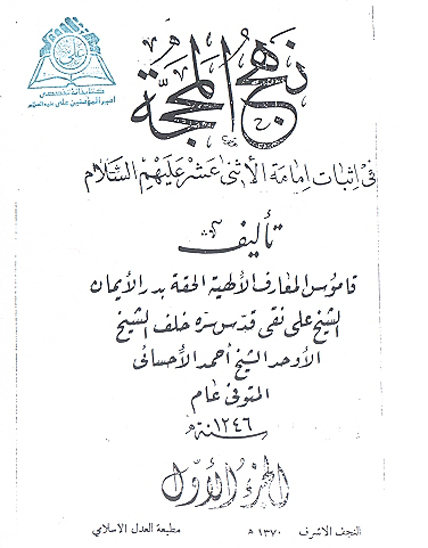 علی
کتابخانه تخصصی
امیرالمؤمنین علی علیه السلام
نهج المحجة
في إثبات إمامة الأثنى عشر عليهم السلام
تأليف
قاموس المعارف الألهية الحقة بدر الأيمان
الشيخ علي نقي قدس سره خلف الشيخ
الأوحد الشيخ أحمد الأحسائي
المتوفى عام
١٢٤٦ سنة
الجزء الأول
النجف الاشرف ١٣٧٠ ه مطبعة العدل الاسلامي